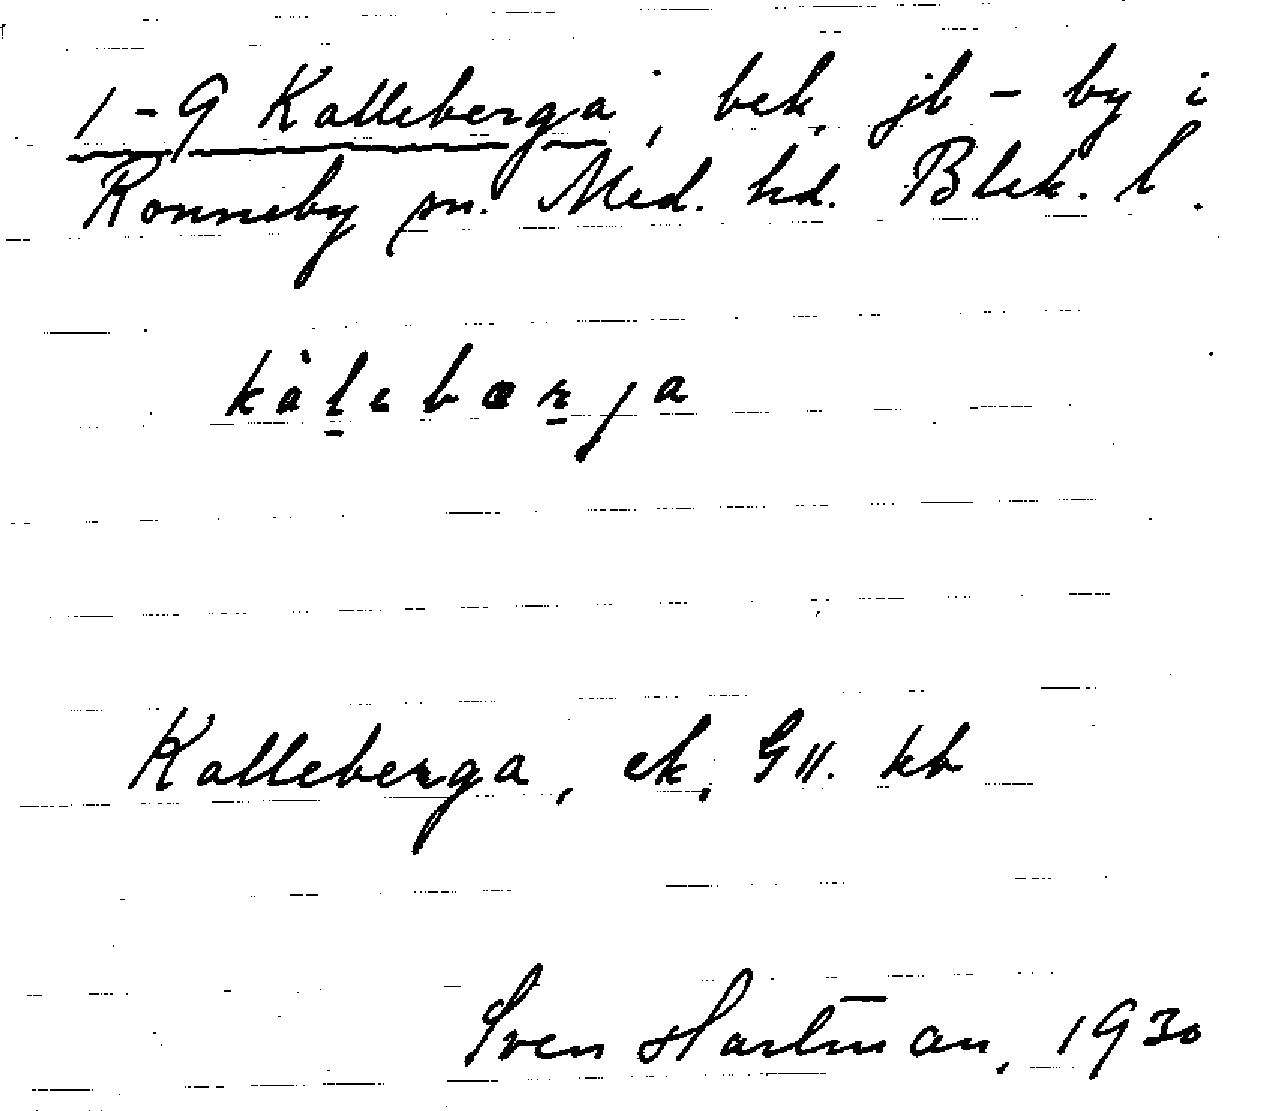 1-9 Kalleberga, bek. jb-by i
Ronneby sn. Med. hd. Blek. l.
kàl̠ebær̠ja
Kalleberga, ek, GII. kb
Sven Hartman, 1930